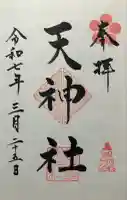 奉拝
天神社
令和七年三月二十五日